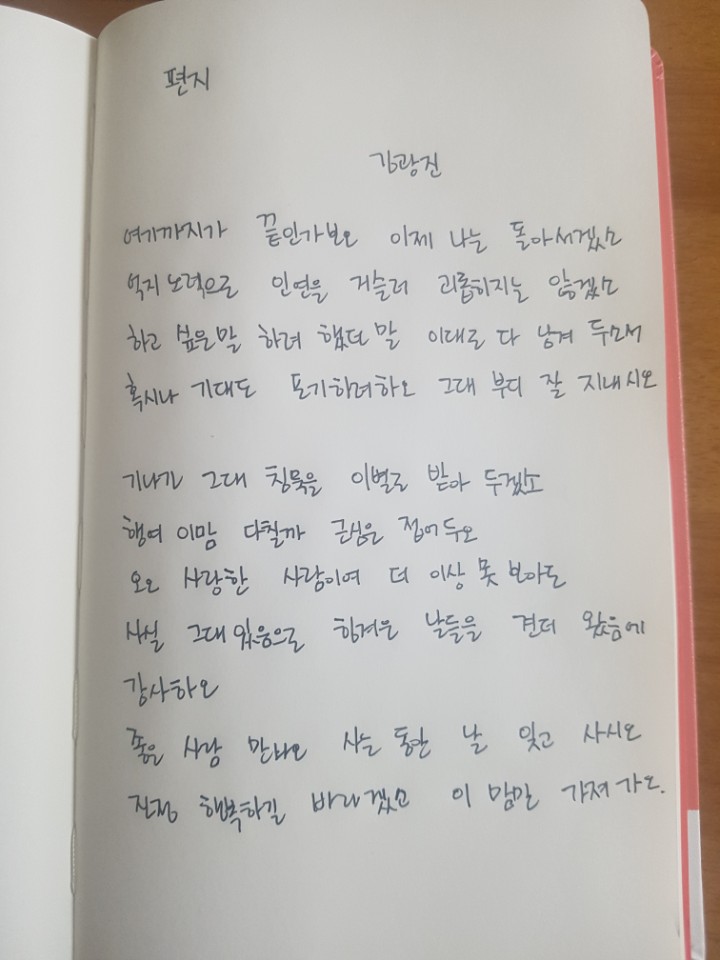 편지
김광진
여기까지가 끝인가보오 이제 나는 돌아서겠소
억지 노력으로 인연을 거슬러 괴롭히지는 않겠소
하고 싶은말 하려 했던 말 이대로 다 남겨 두소서
혹시나 기대도 포기하려하오 그대 부디 잘 지내시오
기나긴 그대 침묵을 이별로 받아 두겠소
행여 이맘 다칠까 근심은 접어두오
오오 사랑한 사람이여 더 이상 못 보아도
사실 그대 있음으로 힘겨운 날들을 견뎌 왔음에
감사하오
좋은 사람 만나오 사는 동안 날 잊고 사시오
진정 행복하길 바라겠소 이 맘만 가져가오.